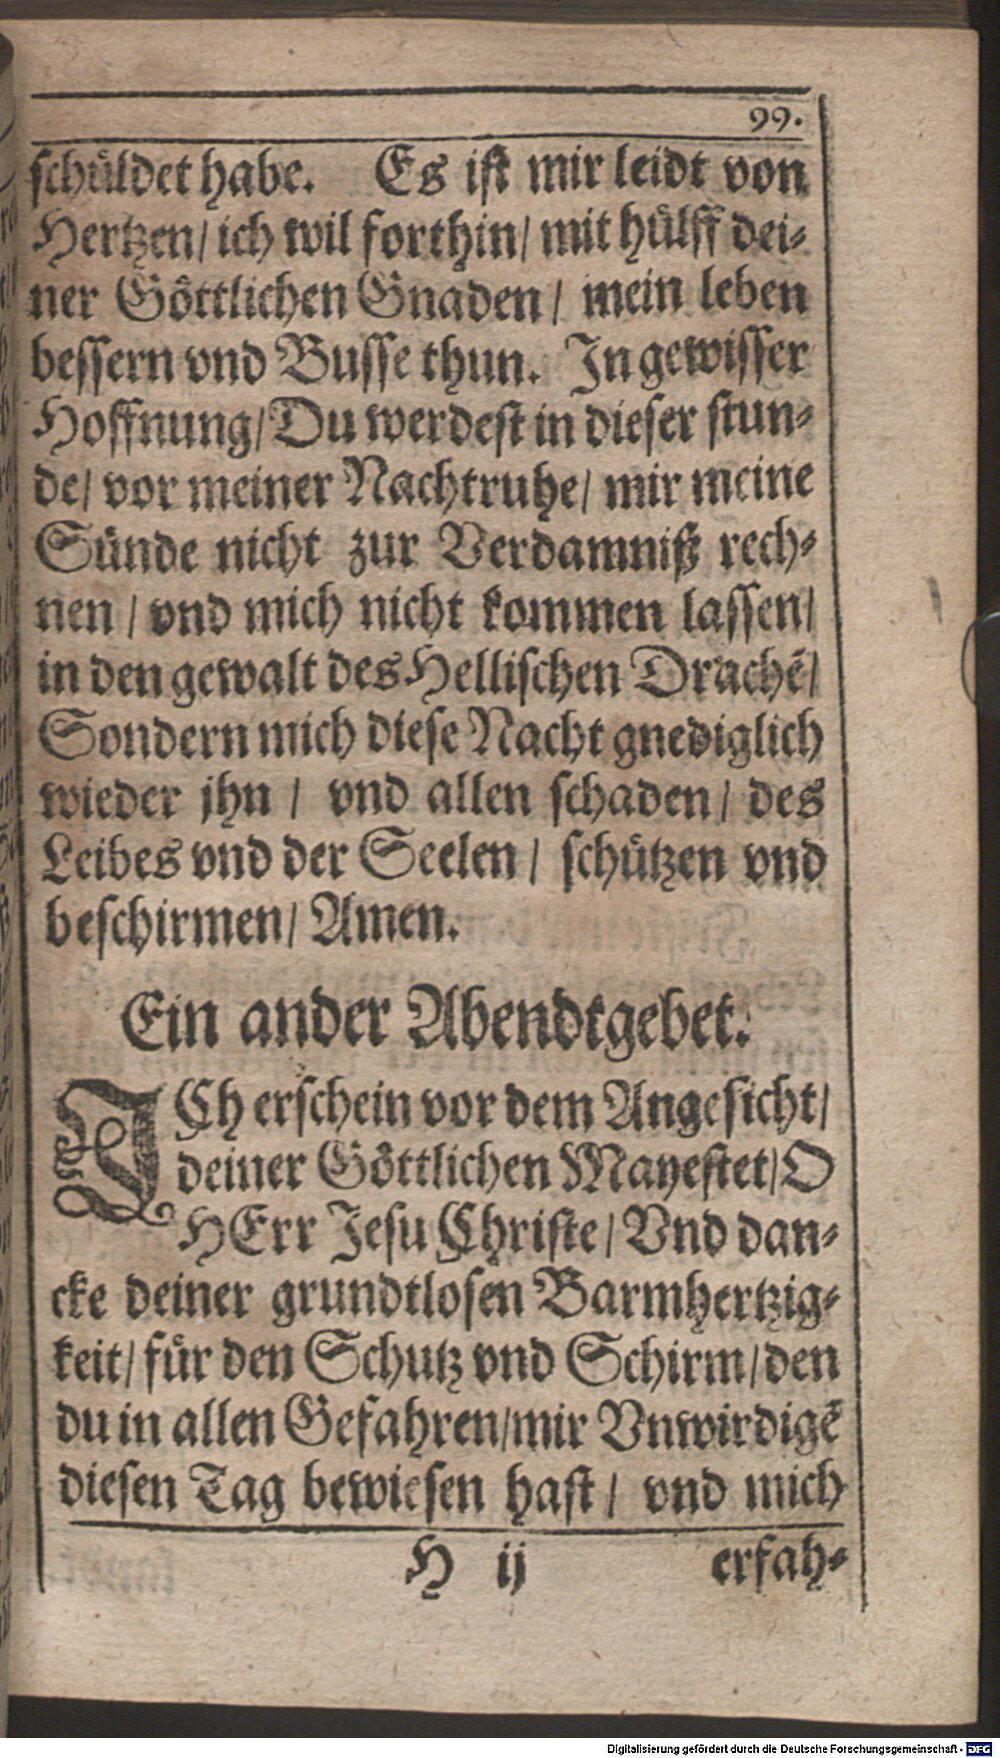 99.
schüldet habe. Es ist mir leidt von
Hertzen/ ich wil forthin/ mit hülff dei⸗
ner Göttlichen Gnaden/ mein leben
bessern vnd Busse thun. In gewisser
Hoffnung/ Du werdest in dieser stun⸗
de/ vor meiner Nachtruhe/ mir meine
Sünde nicht zur Verdamniß rech⸗
nen/ vnd mich nicht kommen lassen/
in den gewalt des Hellischen Drachẽ/
Sondern mich diese Nacht gnediglich
wieder jhn/ vnd allen schaden/ des
Leibes vnd der Seelen/ schützen vnd
beschirmen/ Amen.
Ein ander Abendtgebet.
ICh erschein vor dem Angesicht/
deiner Göttlichen Mayestet/ O
HErr Jesu Christe/ Vnd dan⸗
cke deiner grundtlosen Barmhertzig⸗
keit/ für den Schutz vnd Schirm/ den
du in allen Gefahren/ mir Vnwirdigẽ
diesen Tag bewiesen hast/ vnd mich
H ij erfah⸗
Digitalisierung gefördert durch die Deutsche Forschungsgemeinschaft - DFG